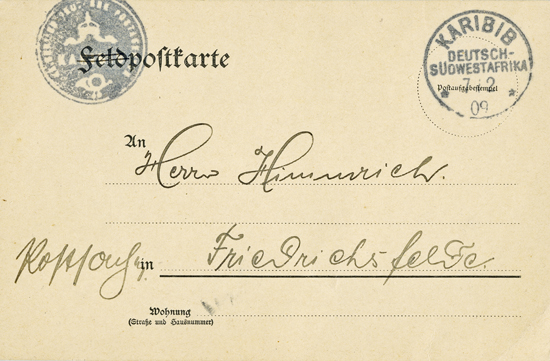 Feldpostkarte
KARIBIB
DEUTSCH-
SÜDWESTAFRIKA
7 12
09
Postaufgabestempel
An
Herrn Himmrich.
Postsache in Friedrichsfelde.
Wohnung
(Straße und Hausnummer)